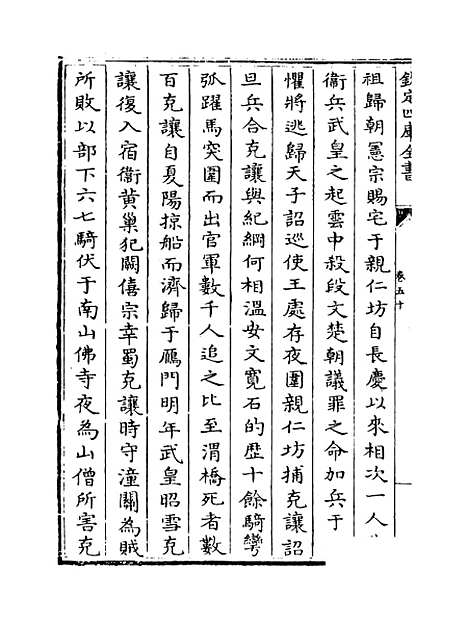 欽定四庫全書
卷五十
祖歸朝憲宗賜宅于親仁坊自長慶以來相次一人
衛兵武皇之起雲中殺段文楚朝議罪之命加兵于
懼將逃歸天子詔巡使王處存夜圍親仁坊捕克讓詰
旦兵合克讓與紀綱何相溫安文寬石的歷十餘騎彎
弧躍馬突圍而出官軍數千人追之比至渭橋死者數
百克讓自夏陽掠船而濟歸于鴈門明年武皇昭雪克
讓復入宿衛黃巢犯闕僖宗幸蜀克讓時守潼關為賊
所敗以部下六七騎伏于南山佛寺夜為山僧所害克